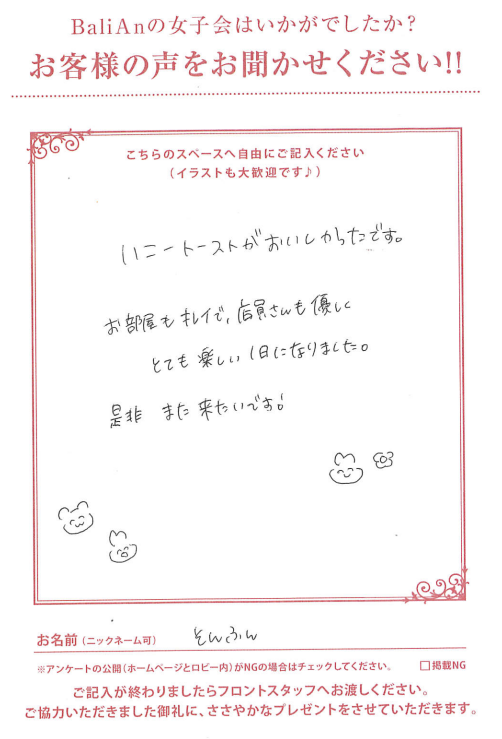 BaliAnの女子会はいかがでしたか?
お客様の声をお聞かせください!!
こちらのスペースへ自由にご記入ください
(イラストも大歓迎です♪)
ハニートーストがおいしかったです。
お部屋もキレイで、店員さんも優しく
とても楽しい1日になりました。
是非 また来たいです!
お名前(ニックネーム可) そんふん
※アンケートの公開(ホームページとロビー内)がNGの場合はチェックしてください。 □掲載NG
ご記入が終わりましたらフロントスタッフへお渡しください。
ご協力いただきました御礼に、ささやかなプレゼントをさせていただきます。